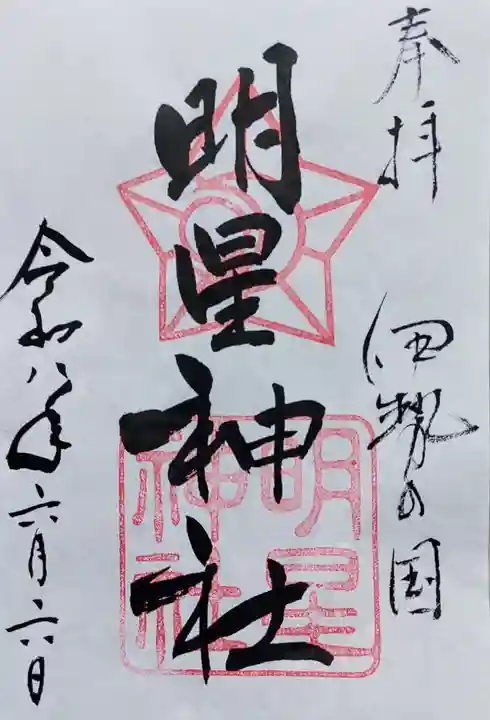 奉拝
伊勢の国
明星神社
明星
神社
令和八年六月六日